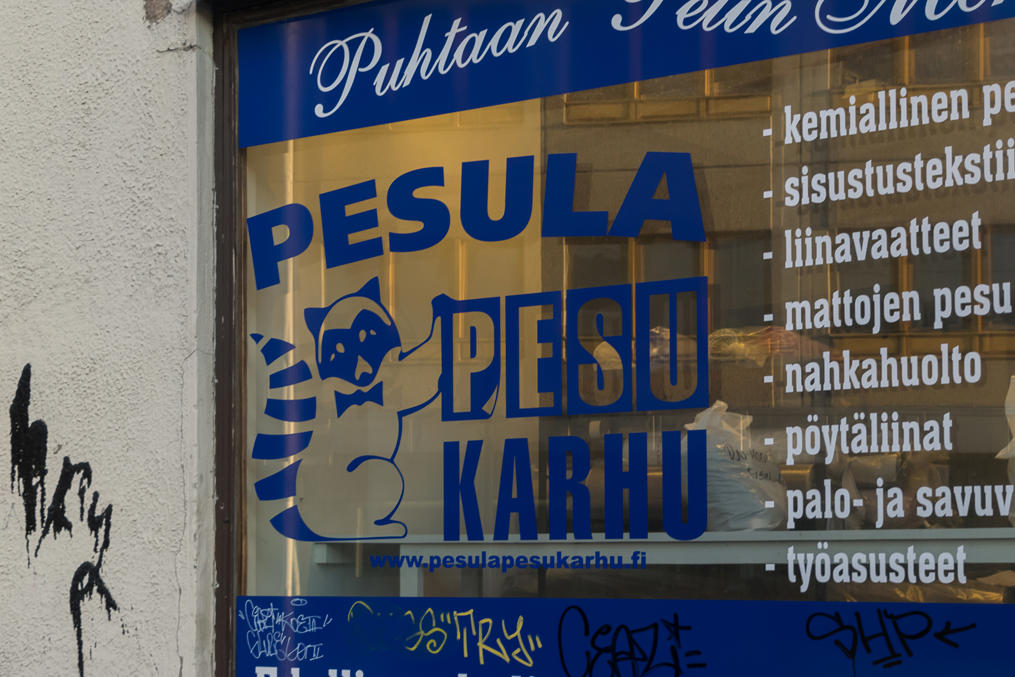 Puhtaan
PESULA
PESU
KARHU
www.pesulapesukarhu.fi
- kemiallinen pe
- sisustustekstii
- liinavaatteet
- mattojen pesu
- nahkahuolto
- pöytäliinat
- palo- ja savuv
- työasusteet
"TRY"
SHP